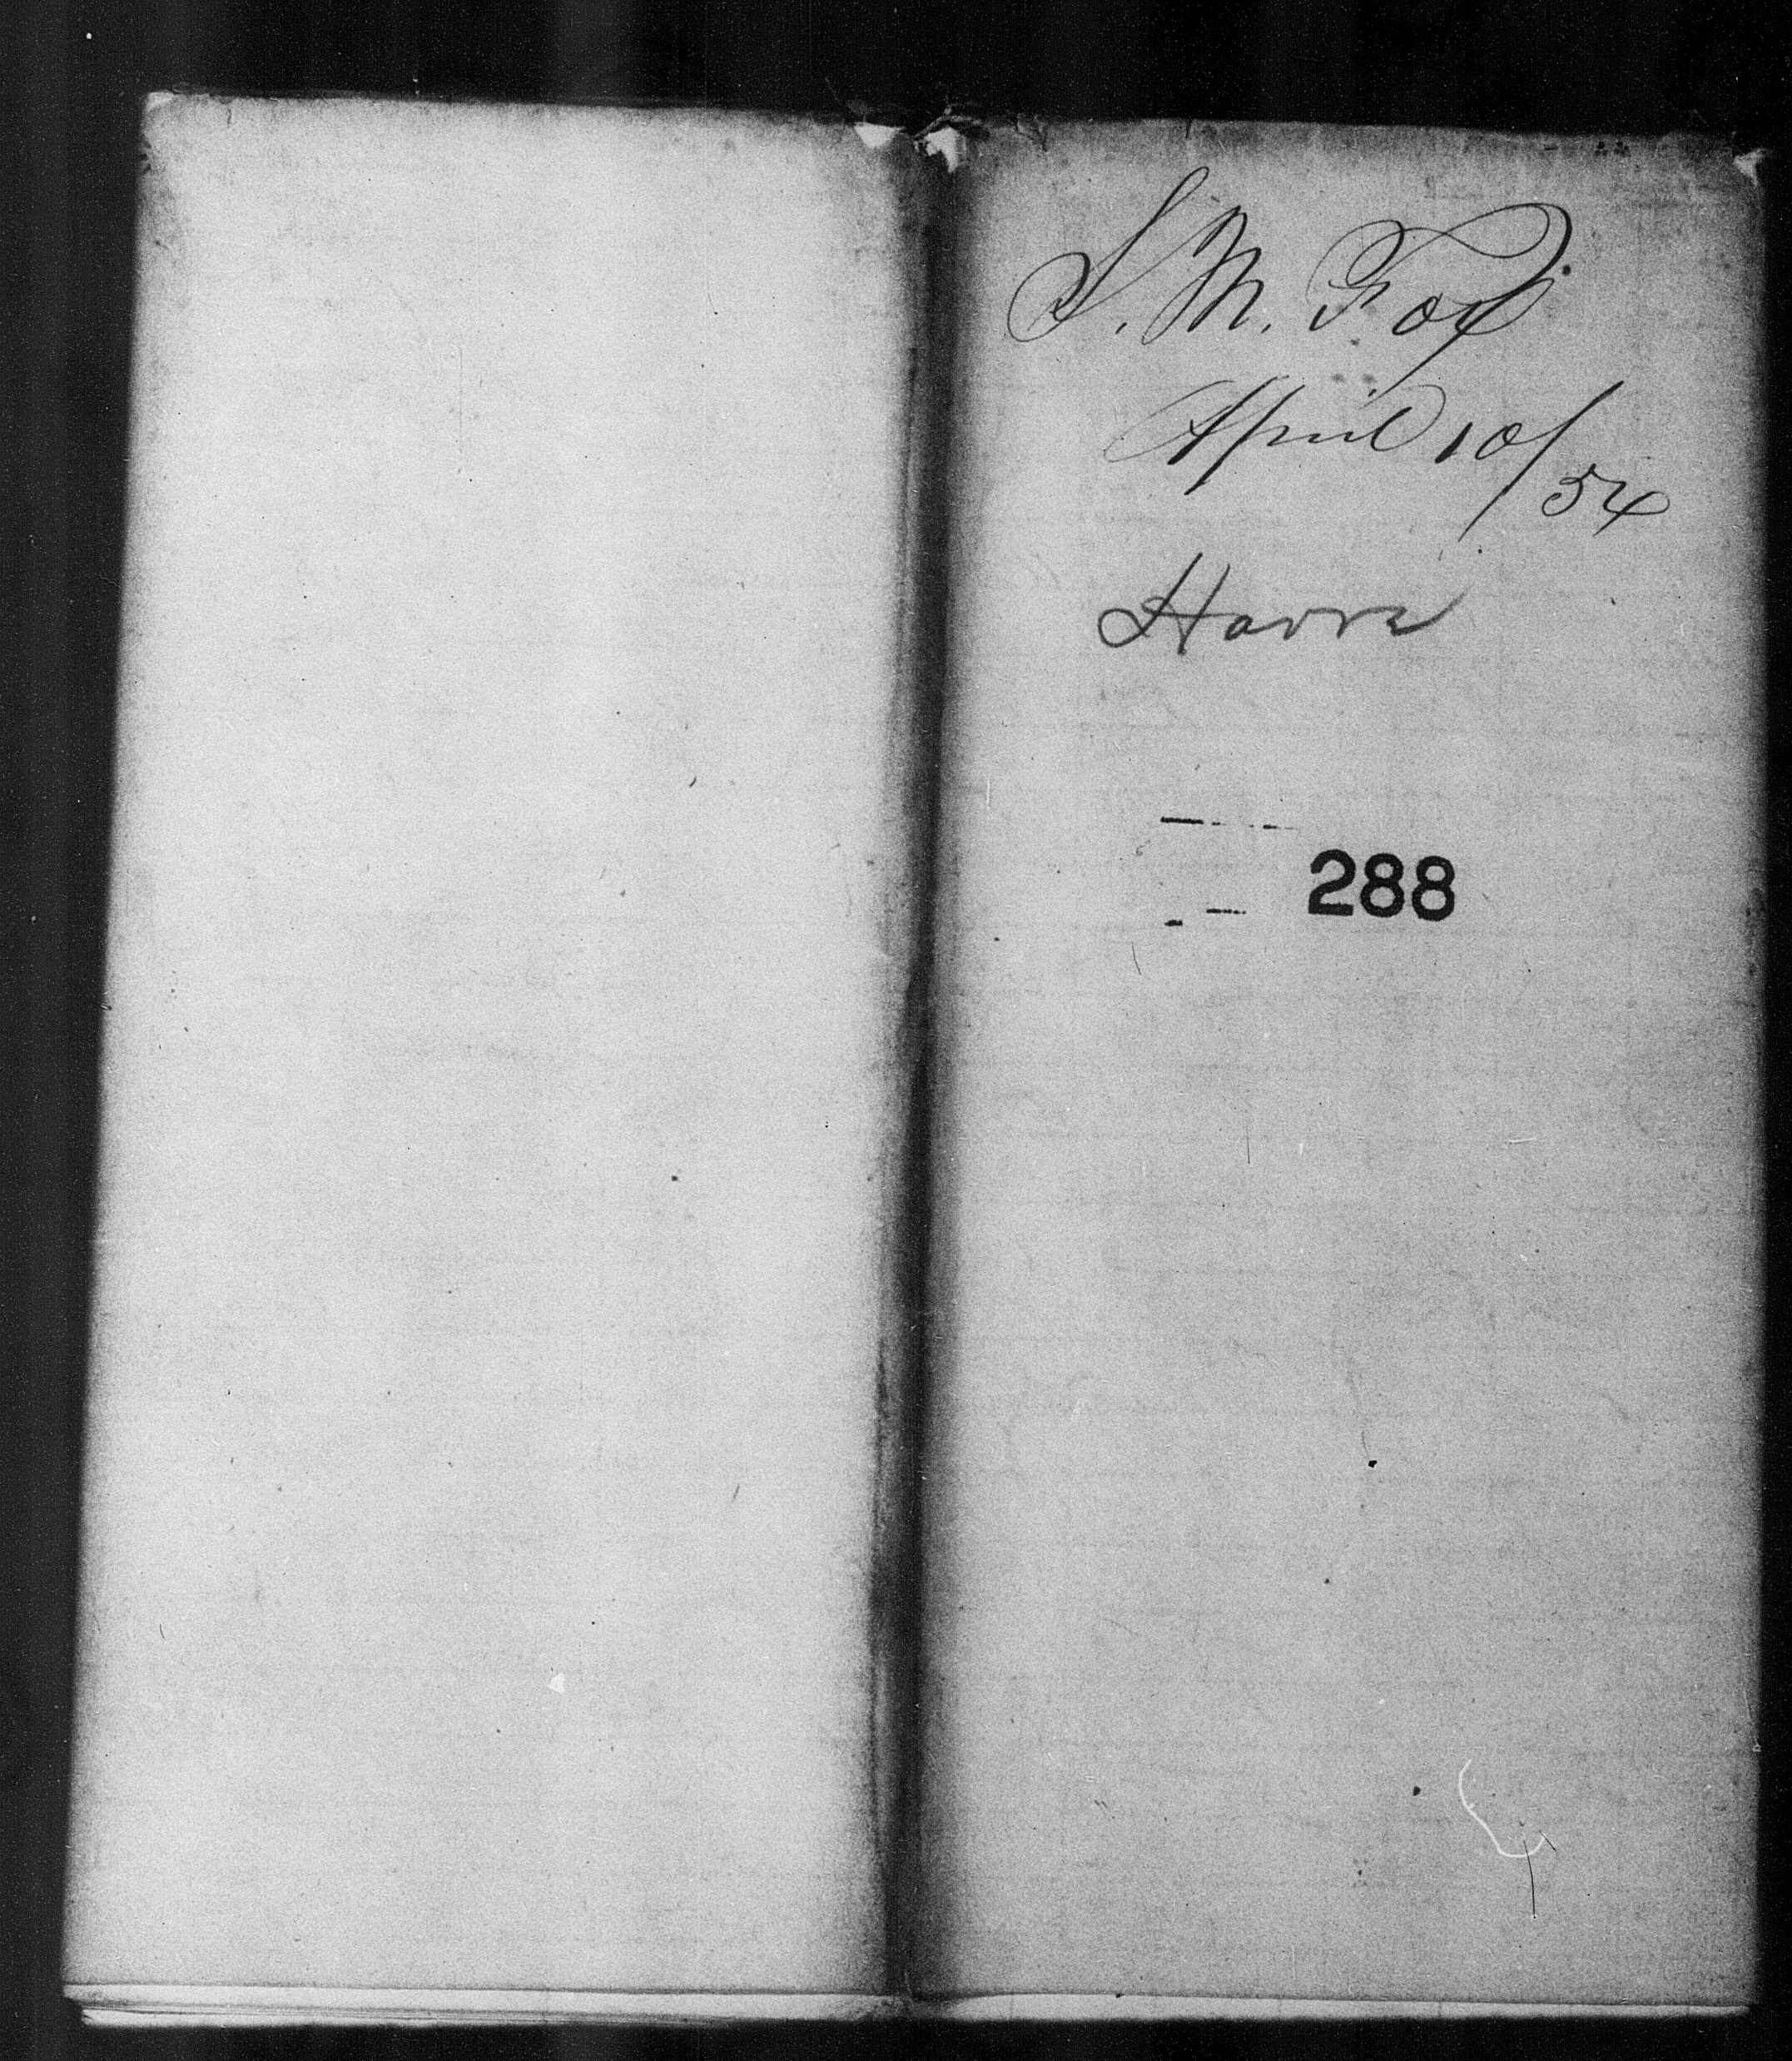 S. M. Fox
April 10/54
Havre
288